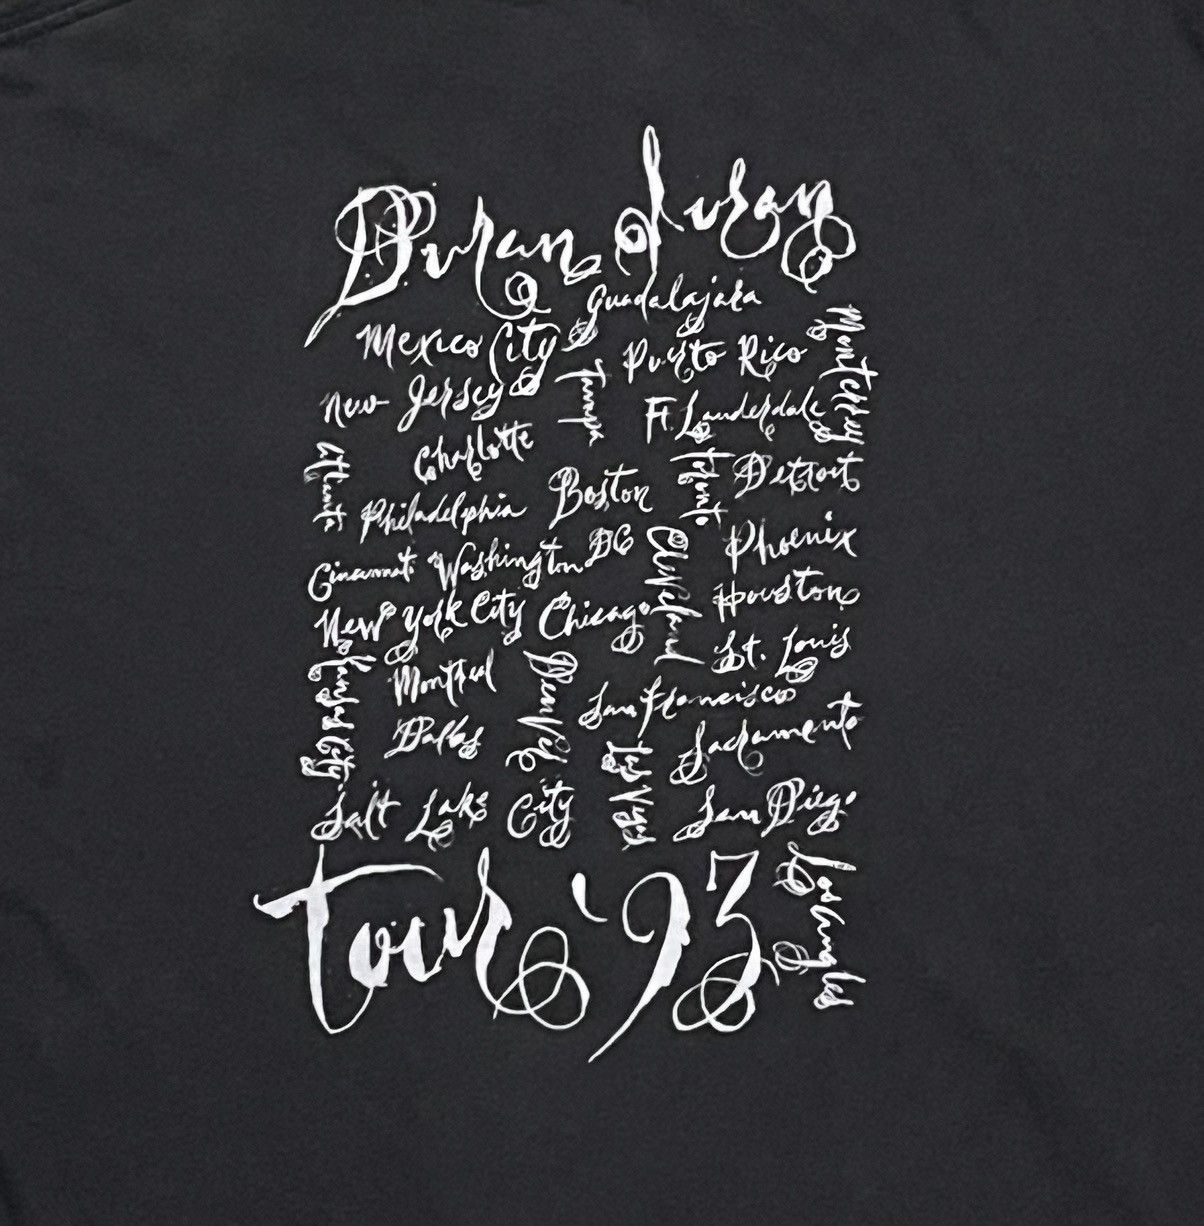 Duran duran
Guadalajara
Mexico City
Puerto Rico
Monterrey
New Jersey
Tampa
Ft Lauderdale
Charlotte
Atlanta
Toronto
Detroit
Philadelphia
Boston
Cincinnati
Washington DC
Cleveland
Phoenix
Houston
New York City
Chicago
St. Louis
Kansas City
Montreal
Denver
San Francisco
Dallas
Las Vegas
Sacramento
Salt Lake City
San Diego
Tour '93
Los Angeles